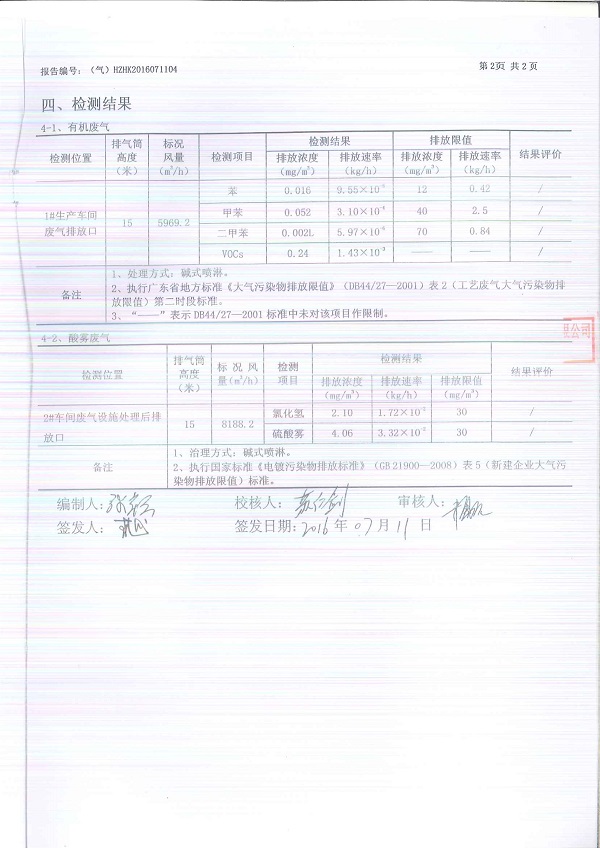 报告编号：（气）HZHK2016071104
第2页 共2页
四、检测结果
4-1、有机废气
检测位置 排气筒高度（米） 标况风量（m³/h） 检测项目 检测结果 排放限值 结果评价
排放浓度（mg/m³） 排放速率（kg/h） 排放浓度（mg/m³） 排放速率（kg/h）
1#生产车间废气排放口 15 5969.2
苯 0.016 12 0.42 /
甲苯 0.052 40 2.5 /
二甲苯 0.002L 70 0.84 /
VOCs 0.24 —— —— /
备注
1、处理方式：碱式喷淋。
2、执行广东省地方标准《大气污染物排放限值》（DB44/27—2001）表2（工艺废气大气污染物排
放限值）第二时段标准。
3、“——”表示DB44/27—2001标准中未对该项目作限制。
4-2、酸雾废气
检测位置 排气筒高度（米） 标况风量（m³/h） 检测项目 检测结果 结果评价
排放浓度（mg/m³） 排放速率（kg/h） 排放限值（mg/m³）
2#车间废气设施处理后排放口 15 8188.2
氯化氢 2.10 30 /
硫酸雾 4.06 30 /
备注
1、治理方式：碱式喷淋。
2、执行国家标准《电镀污染物排放标准》（GB 21900—2008）表5（新建企业大气污
染物排放限值）标准。
编制人： 校核人： 审核人：
签发人： 签发日期：2016年07月11日
公司